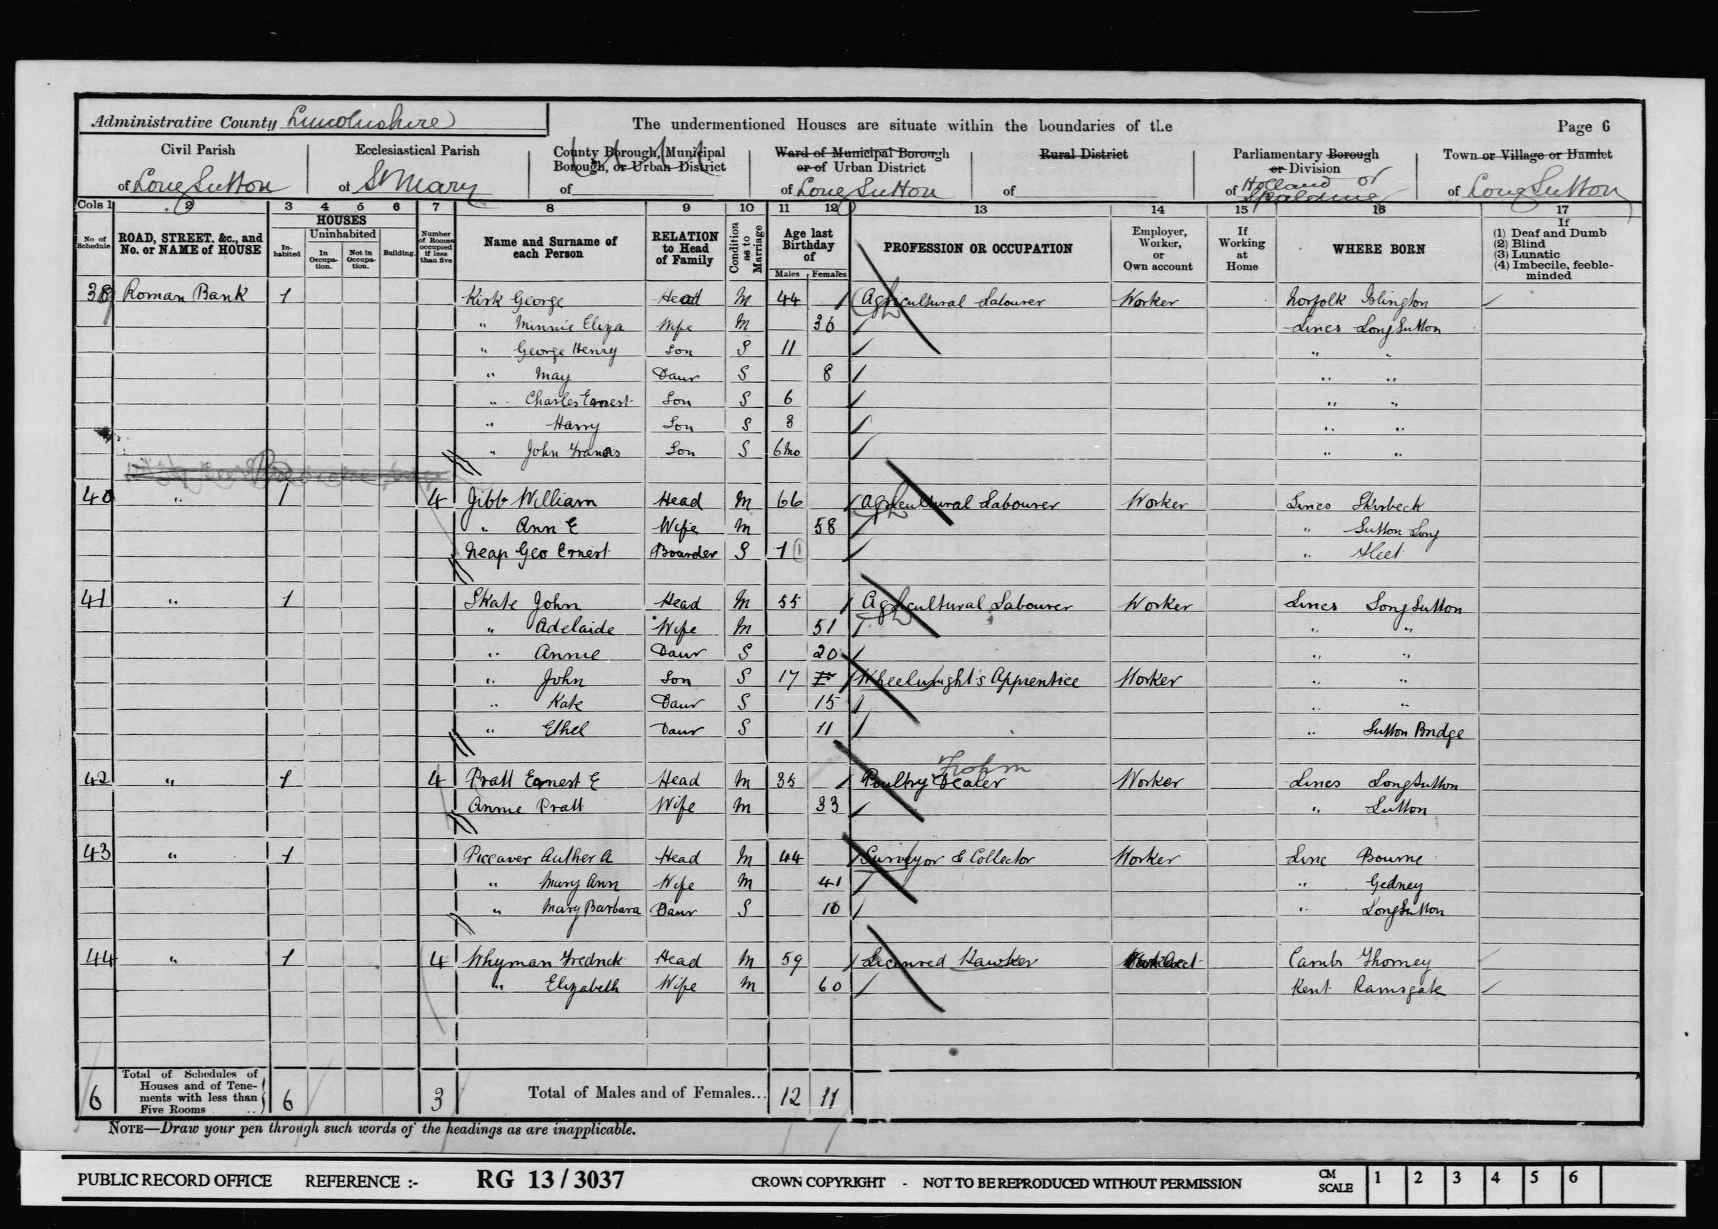 Administrative County Lincolnshire The undermentioned Houses are situate within the boundaries of the Page 6
Civil Parish Ecclesiastical Parish County Borough, Municipal Borough, or Urban District Ward of Municipal Borough or of Urban District Rural District Parliamentary Borough or Division Town or Village or Hamlet
of Long Sutton of St Mary of of Long Sutton of of Holland or Spalding of Long Sutton
Cols 1 2 3 4 5 6 7 8 9 10 11 12 13 14 15 16 17
No. of Schedule ROAD, STREET, &c., and No. or NAME of HOUSE HOUSES Inhabited Uninhabited In Occupation. Not in Occupation. Building. Number of Rooms occupied if less than five Name and Surname of each Person RELATION to Head of Family Condition as to Marriage Age last Birthday of Males Females PROFESSION OR OCCUPATION Employer, Worker, or Own account If Working at Home WHERE BORN If (1) Deaf and Dumb (2) Blind (3) Lunatic (4) Imbecile, feeble-minded
39 Roman Bank 1 Kirk George Head M 44 Agricultural Labourer Worker Norfolk Islington
" Minnie Eliza Wife M 36 Lincs Long Sutton
" George Henry Son S 11 " "
" May Daur S 8 " "
" Charles Ernest Son S 6 " "
" Harry Son S 3 " "
" John Francis Son S 6mo " "
40 " 1 4 Gibb William Head M 66 Agricultural Labourer Worker Lincs Skirbeck
" Ann E Wife M 58 " Sutton Long
Neap Geo Ernest Boarder S 1 " Fleet
41 " 1 Skate John Head M 55 Agricultural Labourer Worker Lincs Long Sutton
" Adelaide Wife M 51 " "
" Annie Daur S 20 " "
" John Son S 17 Wheelwright's Apprentice Worker " "
" Kate Daur S 15 " "
" Ethel Daur S 11 " Sutton Bridge
42 " 1 4 Pratt Ernest E Head M 35 Poultry Dealer Worker Lincs Long Sutton
Annie Pratt Wife M 33 " Sutton
43 " 1 Piccaver Auther A Head M 44 Surveyor & Collector Worker Linc Bourne
" Mary Ann Wife M 41 " Gedney
" Mary Barbara Daur S 10 " Long Sutton
44 " 1 4 Whyman Fredrick Head M 59 Licensed Hawker Cambs Thorney
" Elizabeth Wife M 60 Kent Ramsgate
6 Total of Schedules of Houses and of Tenements with less than Five Rooms 6 3 Total of Males and of Females... 12 11
NOTE—Draw your pen through such words of the headings as are inapplicable.
PUBLIC RECORD OFFICE REFERENCE :- RG 13 / 3037 CROWN COPYRIGHT - NOT TO BE REPRODUCED WITHOUT PERMISSION CM SCALE 1 2 3 4 5 6